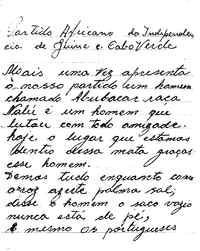 Partido Africano da Independen
cia de Guiné e Cabo Verde
Mais uma vez apresenta
o nosso partido um homem
chamado Abubacar raça
Nalú é um homem que
lutou com todo amigade.
hoje o lugar que estamos
dentro dessa mata graças
esse homem.
Demos tudo enquanto com
arroz azeite palma sal,
disse o homem o saco vazio
nunca está de pé,
E mesmo os portugueses